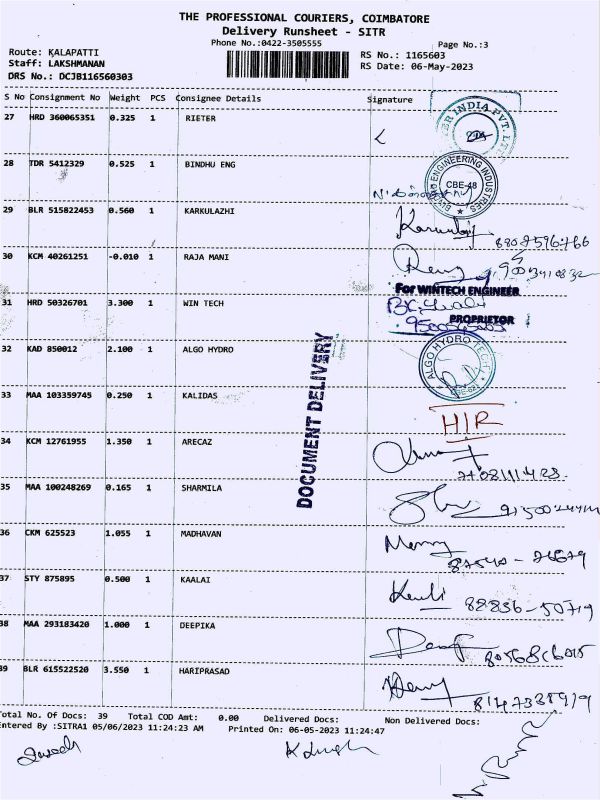 THE PROFESSIONAL COURIERS, COIMBATORE
Delivery Runsheet - SITR
Phone No.:0422-3505555
Page No.:3
Route: KALAPATTI
Staff: LAKSHMANAN
DRS No.: DCJB116560303
RS No.: 1165603
RS Date: 06-May-2023
S No Consignment No Weight PCS Consignee Details Signature
27 HRD 360065351 0.325 1 RIETER
INDIA PVT. LTD
28 TDR 5412329 0.525 1 BINDHU ENG
ENGINEERING INDUSTRIES
CBE-48
29 BLR 515822453 0.560 1 KARKULAZHI
30 KCM 40261251 -0.010 1 RAJA MANI
For WINTECH ENGINEER
31 HRD 50326701 3.300 1 WIN TECH
PROPRIETOR
32 KAD 850012 2.100 1 ALGO HYDRO
ALGO HYDRO TECH
DOCUMENT DELIVERY
33 MAA 103359745 0.250 1 KALIDAS
HIR
34 KCM 12761955 1.350 1 ARECAZ
35 MAA 100248269 0.165 1 SHARMILA
36 CKM 625523 1.055 1 MADHAVAN
37 STY 875895 0.500 1 KAALAI
88836-50719
38 MAA 293183420 1.000 1 DEEPIKA
39 BLR 615522520 3.550 1 HARIPRASAD
Total No. Of Docs: 39 Total COD Amt: 0.00 Delivered Docs: Non Delivered Docs:
Entered By :SITRA1 05/06/2023 11:24:23 AM Printed On: 06-05-2023 11:24:47